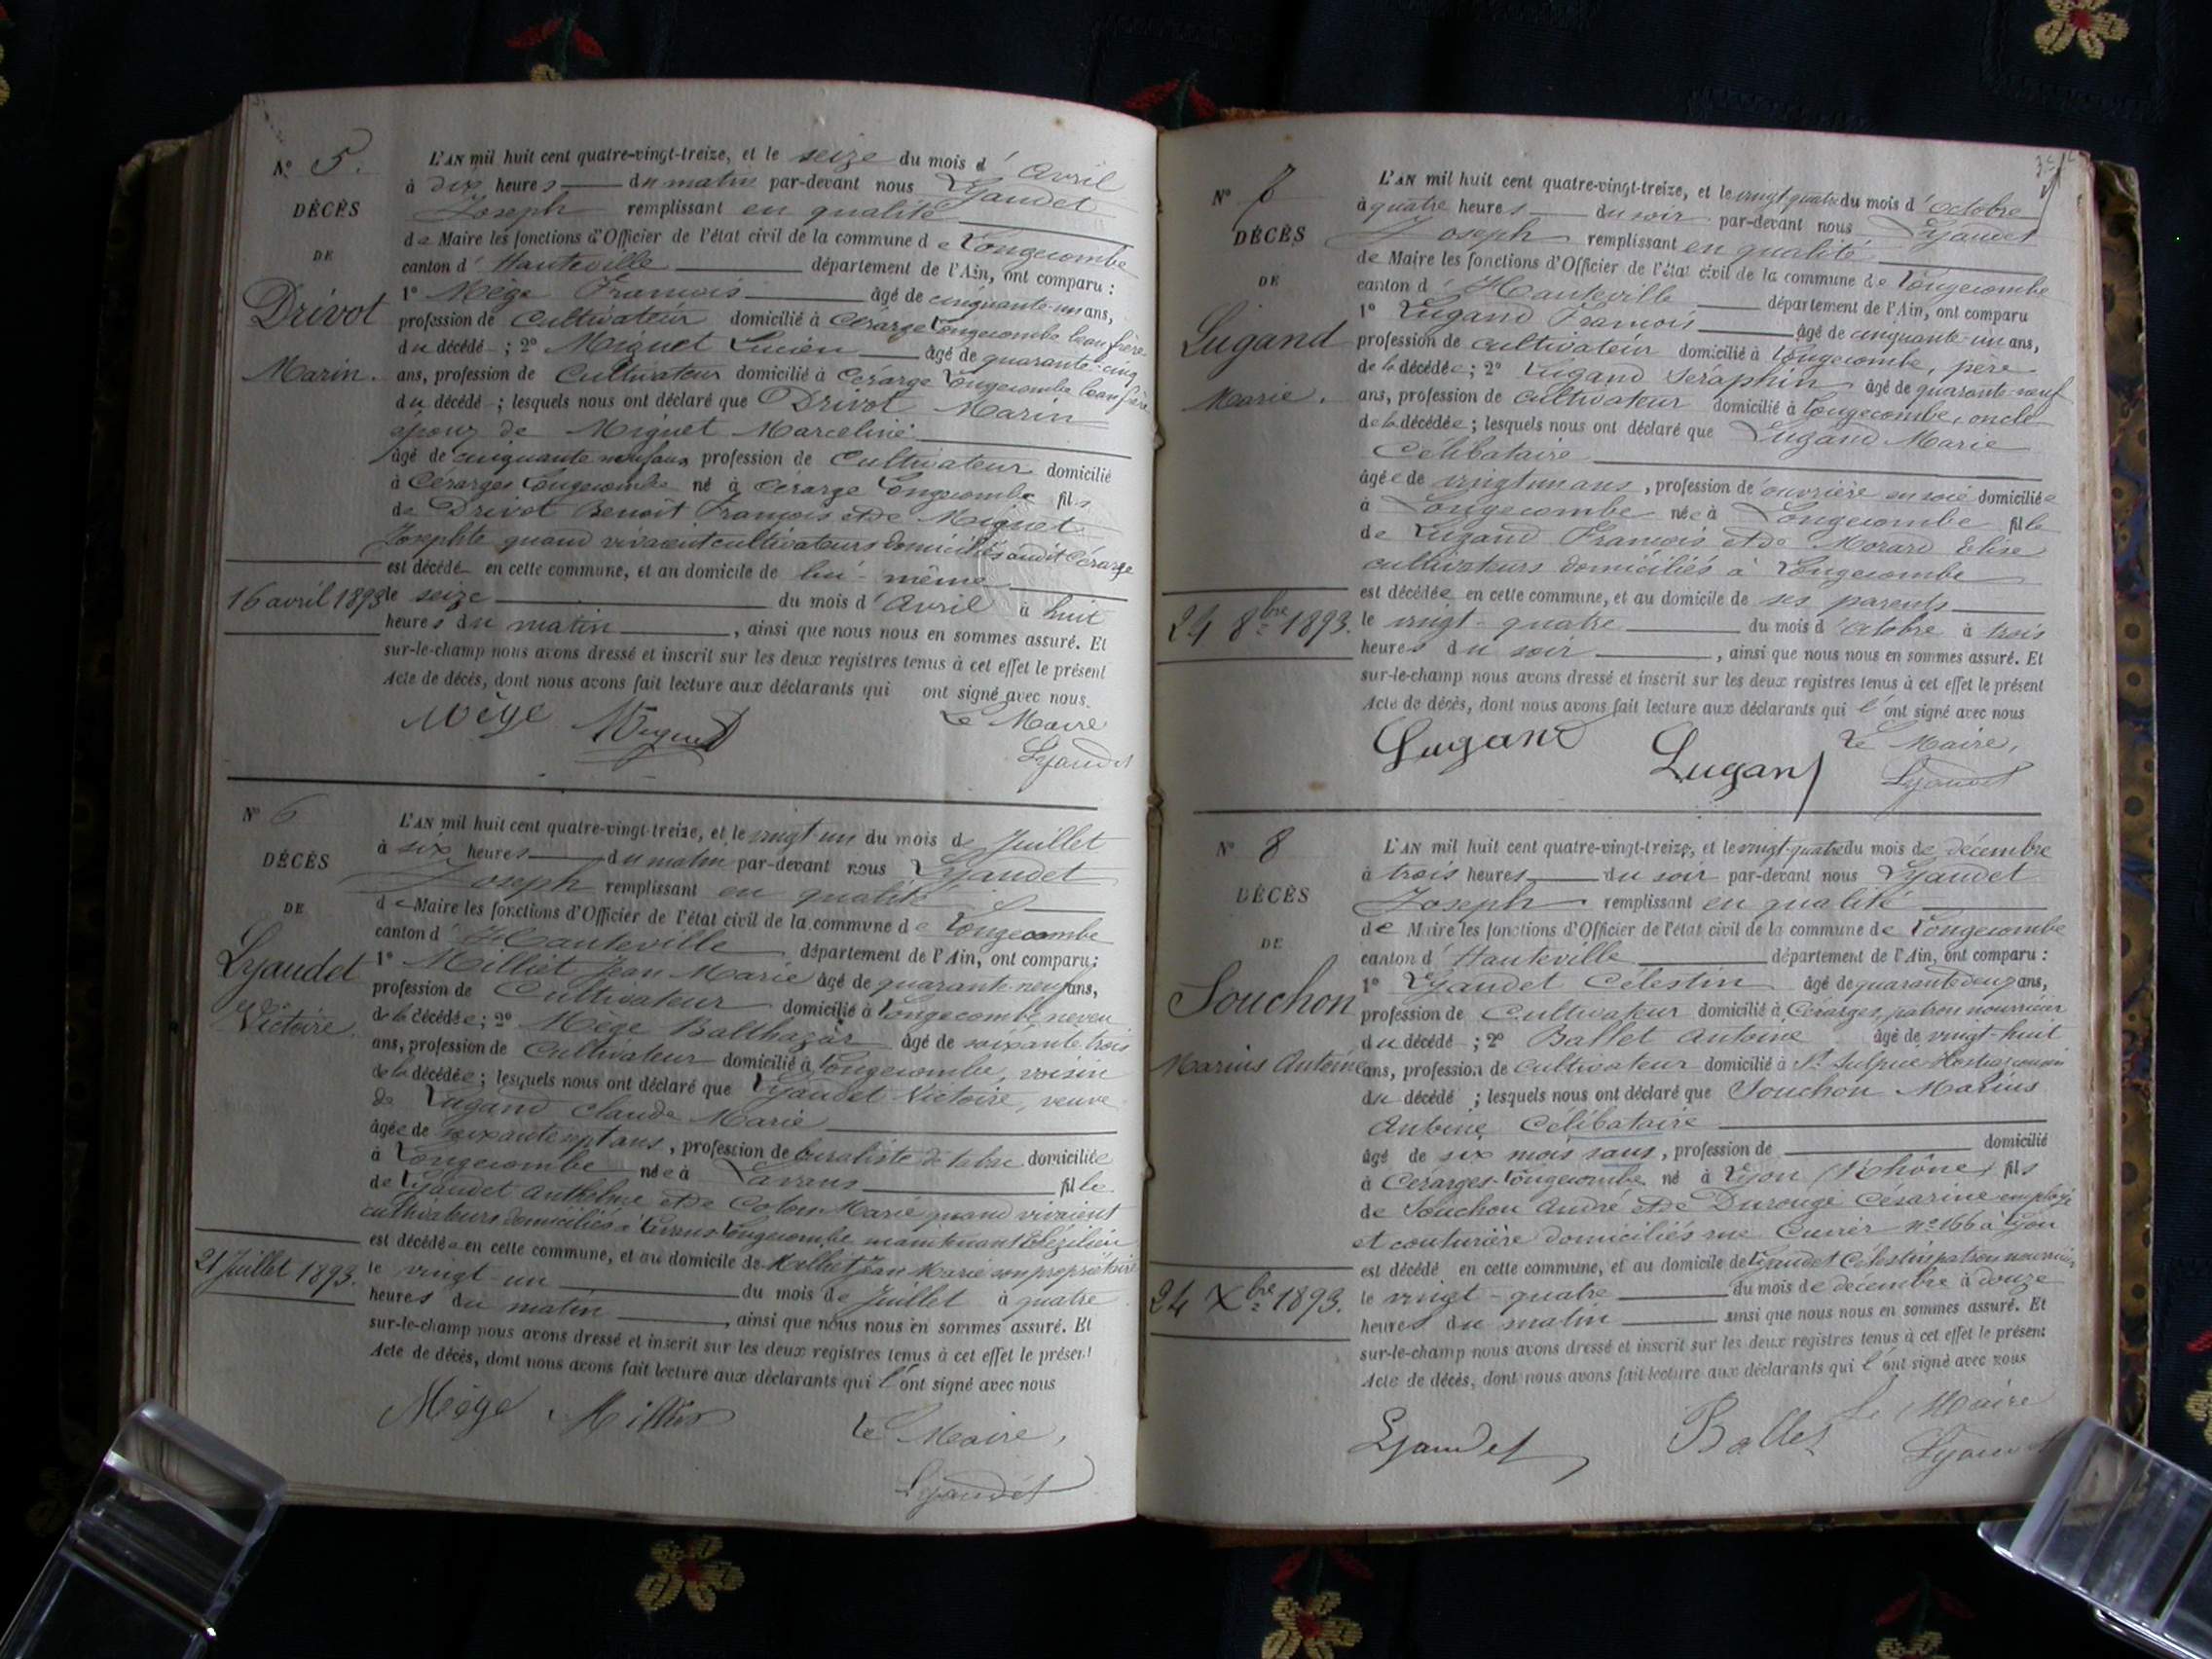 N° 5.
DÉCÈS
DE
Drivot
Marin.
16 avril 1893
L'AN mil huit cent quatre-vingt-treize, et le seize du mois d'Avril
à dix heures du matin par-devant nous Lyaudet
Joseph remplissant en qualité
de Maire les fonctions d'Officier de l'état civil de la commune de Longecombe
canton d'Hauteville département de l'Ain, ont comparu :
1° Mège François âgé de cinquante-un ans,
profession de Cultivateur domicilié à Cérarge Longecombe beau frère
du décédé ; 2° Miguet Lucien âgé de quarante-cinq
ans, profession de Cultivateur domicilié à Cérarge Longecombe beau frère
du décédé ; lesquels nous ont déclaré que Drivot Marin
époux de Miguet Marceline
âgé de cinquante neuf ans, profession de Cultivateur domicilié
à Cérarges Longecombe né à Cérarge Longecombe fils
de Drivot Benoît François et de Miguet
Josephte quand vivaient cultivateurs domiciliés audit Cérarge
est décédé en cette commune, et au domicile de lui-même
le seize du mois d'Avril à huit
heures du matin, ainsi que nous nous en sommes assuré. Et
sur-le-champ nous avons dressé et inscrit sur les deux registres tenus à cet effet le présent
Acte de décès, dont nous avons fait lecture aux déclarants qui ont signé avec nous.
Mège Miguet Le Maire
Lyaudet
N° 6
DÉCÈS
DE
Lyaudet
Victoire.
21 Juillet 1893.
L'AN mil huit cent quatre-vingt-treize, et le vingt-un du mois de Juillet
à six heures du matin par-devant nous Lyaudet
Joseph remplissant en qualité
de Maire les fonctions d'Officier de l'état civil de la commune de Longecombe
canton d'Hauteville département de l'Ain, ont comparu :
1° Milliet Jean Marie âgé de quarante-neuf ans,
profession de Cultivateur domicilié à Longecombe neveu
de la décédée ; 2° Mège Balthazar âgé de soixante trois
ans, profession de Cultivateur domicilié à Longecombe, voisin
de la décédée ; lesquels nous ont déclaré que Lyaudet Victoire, veuve
de Lugand Claude Marie
âgée de soixante sept ans, profession de buraliste de tabac domiciliée
à Longecombe née à Lavans fille
de Lyaudet Anthelme et de Marie quand vivaient
cultivateurs domiciliés à Longecombe maintenant
est décédée en cette commune, et au domicile de Milliet Jean Marie son propriétaire
le vingt-un du mois de Juillet à quatre
heures du matin, ainsi que nous nous en sommes assuré. Et
sur-le-champ nous avons dressé et inscrit sur les deux registres tenus à cet effet le présent
Acte de décès, dont nous avons fait lecture aux déclarants qui l'ont signé avec nous
Mège Milliet Le Maire,
Lyaudet
N° 7
DÉCÈS
DE
Lugand
Marie.
24 8bre 1893.
L'AN mil huit cent quatre-vingt-treize, et le vingt quatre du mois d'octobre
à quatre heures du soir par-devant nous Lyaudet
Joseph remplissant en qualité
de Maire les fonctions d'Officier de l'état civil de la commune de Longecombe
canton d'Hauteville département de l'Ain, ont comparu
1° Lugand François âgé de cinquante-un ans,
profession de cultivateur domicilié à Longecombe, père
de la décédée ; 2° Lugand Séraphin âgé de quarante-neuf
ans, profession de cultivateur domicilié à Longecombe, oncle
de la décédée ; lesquels nous ont déclaré que Lugand Marie
Célibataire
âgée de vingt un ans, profession de ouvrière en soie domiciliée
à Longecombe née à Longecombe fille
de Lugand François et de Morard Elise
cultivateurs domiciliés à Longecombe
est décédée en cette commune, et au domicile de ses parents
le vingt-quatre du mois d'octobre à trois
heures du soir, ainsi que nous nous en sommes assuré. Et
sur-le-champ nous avons dressé et inscrit sur les deux registres tenus à cet effet le présent
Acte de décès, dont nous avons fait lecture aux déclarants qui l'ont signé avec nous
Lugand Lugand Le Maire,
Lyaudet
N° 8
DÉCÈS
DE
Souchon
Marius Antoine
24 Xbre 1893.
L'AN mil huit cent quatre-vingt-treize, et le vingt-quatre du mois de décembre
à trois heures du soir par-devant nous Lyaudet
Joseph remplissant en qualité
de Maire les fonctions d'Officier de l'état civil de la commune de Longecombe
canton d'Hauteville département de l'Ain, ont comparu :
1° Lyaudet Célestin âgé de quarante deux ans,
profession de Cultivateur domicilié à Cérarges, patron nourricier
du décédé ; 2° Ballet Antoine âgé de vingt-huit
ans, profession de cultivateur domicilié à St Sulpice
du décédé ; lesquels nous ont déclaré que Souchon Marius
Antoine Célibataire
âgé de six mois sans, profession de domicilié
à Cérarges-Longecombe né à Lyon (Rhône) fils
de Souchon André et de Durouge Césarine employé
et couturière domiciliés rue Cuvier n° 166 à Lyon
est décédé en cette commune, et au domicile de Lyaudet Célestin patron nourricier
le vingt-quatre du mois de décembre à douze
heures du matin ainsi que nous nous en sommes assuré. Et
sur-le-champ nous avons dressé et inscrit sur les deux registres tenus à cet effet le présent
Acte de décès, dont nous avons fait lecture aux déclarants qui l'ont signé avec nous
Lyaudet Ballet Le Maire
Lyaudet